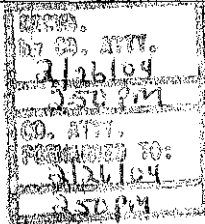 RECVD.
BY CO. ATTY.
2/26/04
250 PM
CO. ATTY.
FORWARDED TO:
2/26/04
250PM